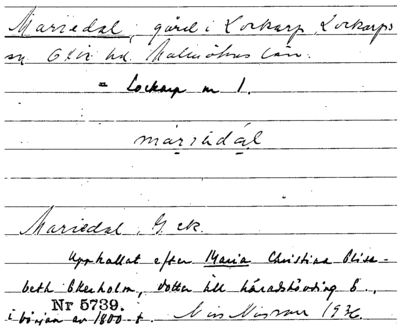 Mariedal, gård i Lockarp, Lockarps
sn Oxie hd. Malmöhus län.
= Lockarp nr 1.
mariedal
Mariedal, G. ek.
Uppkallat efter Maria Christina Elisa-
beth Ekerholm, dotter till häradshövding E.,
i början av 1800-t. Nils Nilsson 1936.
Nr 5739.